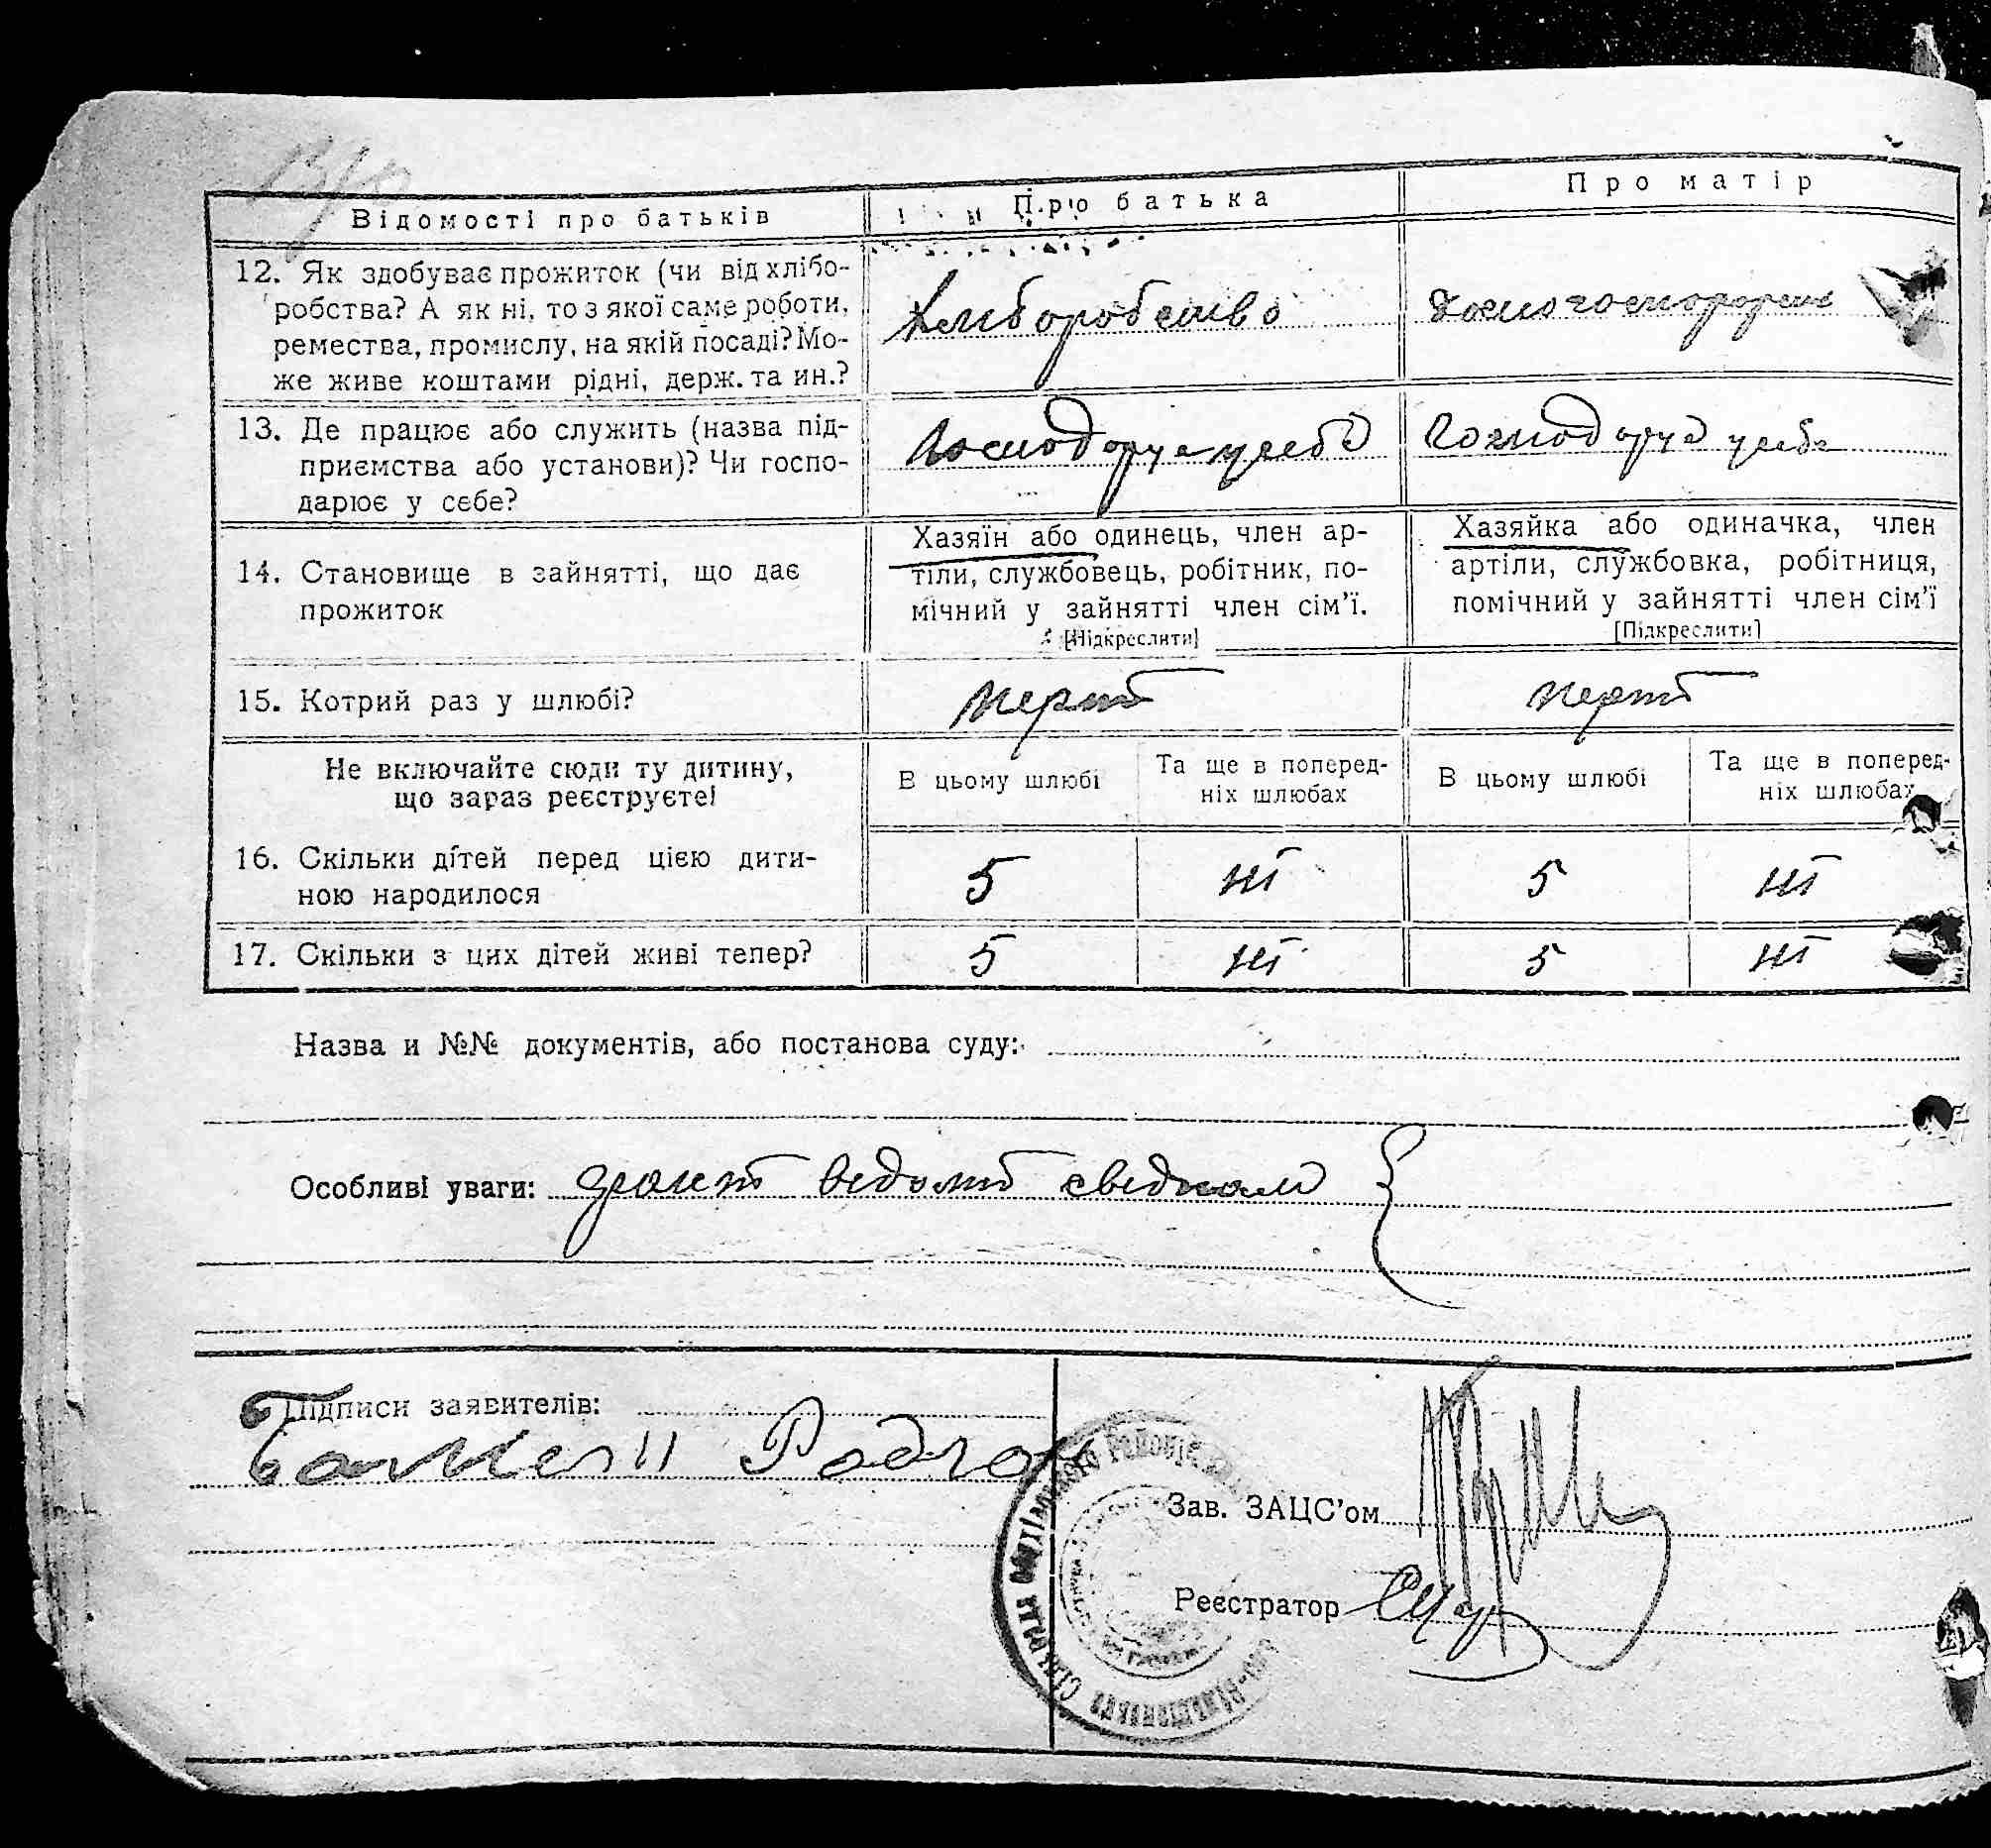 Відомості про батьків
Про батька
Про матір
12. Як здобуває прожиток (чи від хлібо-
робства? А як ні, то з якої саме роботи,
ремества, промислу, на якій посаді? Мо-
же живе коштами рідні, держ. та ин.?
Хлиборобство
13. Де працює або служить (назва під-
приємства або установи)? Чи госпо-
дарює у себе?
Господорує у себе
Господорує у себе
14. Становище в зайнятті, що дає
прожиток
Хазяїн або одинець, член ар-
тіли, службовець, робітник, по-
мічний у зайнятті член сім'ї.
[Підкреслити]
Хазяйка або одиначка, член
артіли, службовка, робітниця,
помічний у зайнятті член сім'ї
[Підкреслити]
15. Котрий раз у шлюбі?
перший
перший
Не включайте сюди ту дитину,
що зараз реєструєте!
В цьому шлюбі
Та ще в поперед-
ніх шлюбах
В цьому шлюбі
Та ще в поперед-
ніх шлюбах
16. Скільки дітей перед цією дити-
ною народилося
5 ні 5 ні
17. Скільки з цих дітей живі тепер?
5 ні 5 ні
Назва и №№ документів, або постанова суду:
Особливі уваги:
Підписи заявителів:
Зав. ЗАЦС'ом
Реєстратор